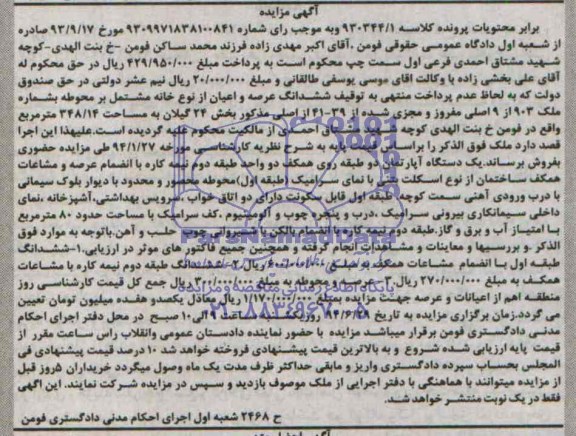 آگهی مزایده
برابر محتویات پرونده کلاسه ۹۳۰۳۴۴/۱ وبه موجب رای شماره ۹۳۰۹۹۷۱۸۳۸۱۰۰۸۴۱ مورخ ۹۳/۹/۱۷ صادره
از شعبه اول دادگاه عمومی حقوقی فومن ،آقای اکبر مهدی زاده فرزند محمد ساکن فومن -خ بنت الهدی-کوچه
شهید مشتاق احمدی فرعی اول سمت چپ محکوم است به پرداخت مبلغ ۴۲۹/۹۵۰/۰۰۰ ریال در حق محکوم له
آقای علی بخشی زاده با وکالت اقای موسی یوسفی طالقانی و مبلغ ۲۰/۰۰۰/۰۰۰ ریال نیم عشر دولتی در حق صندوق
دولت که به لحاظ عدم پرداخت منتهی به توقیف ششدانگ عرصه و اعیان از خانه مشتمل بر محوطه بشماره
ملک ۹۰۳ از ۹ اصلی مفروز و مجزی شده از ۳۹-۴۱ از اصلی مذکور بخش ۲۴ گیلان به مساحت ۳۴۸/۱۴ مترمربع
واقع در فومن خ بنت الهدی کوچه شهید مشتاق احمدی از مالکیت محکوم علیه گردیده است.علیهذا این اجرا
قصد دارد ملک فوق الذکر را براساس قیمت پایه به شرح نظریه کارشناسی مورخه ۹۴/۱/۲۷ طی مزایده حضوری
بفروش برساند.یک دستگاه آپارتمان دو طبقه روی همکف دو واحد طبقه دوم نیمه کاره با انضمام عرصه و مشاعات
همکف ساختمان از نوع اسکلت بتنی با نمای سرامیک (طبقه اول)محوطه محصور و محدود با دیوار بلوک سیمانی
با درب ورودی آهنی سمت کوچه طبقه اول قابل سکونت دارای دو اتاق خواب ،سرویس بهداشتی،آشپزخانه ،نمای
داخلی سیمانکاری بیرونی سرامیک ،درب و پنجره چوب و آلومینیوم ،کف سرامیک با مساحت حدود ۸۰ مترمربع
با امتیاز آب و برق و گاز.طبقه دوم نیمه کاره با انضمام بالکن با شیروانی چوب حلب و آهن.باتوجه به موارد فوق
الذکر .و بررسیها و معاینات و مشاهدات انجام گرفته و همچنین جمیع فاکتور های موثر در ارزیابی.۱-ششدانگ
طبقه اول با انضمام مشاعات همکف به مبلغ ریال.۲-ششدانگ طبقه دوم نیمه کاره با مشاعات
همکف به مبلغ ۲۷۰/۰۰۰/۰۰۰ ریال و محوطه به مبلغ ریال جمع کل قیمت کارشناسی روز
منطقه اهم از اعیانات و عرصه جهت مزایده بمبلغ ۱/۱۷۰/۰۰۰/۰۰۰ ریال معادل یکصدو هفده میلیون تومان تعیین
می گردد.زمان برگزاری مزایده به تاریخ روز ساعت ۹ الی ۱۰ صبح در محل دفتر اجرای احکام
مدنی دادگستری فومن برقرار میباشد مزایده با حضور نماینده دادستان عمومی وانقلاب راس ساعت مقرر از
قیمت پایه ارزیابی شده شروع و به بالاترین قیمت پیشنهادی فروخته خواهد شد ۱۰ درصد قیمت پیشنهادی فی
المجلس بحساب سپرده دادگستری واریز و مابقی حداکثر ظرف مدت یک ماه وصول میگردد خریداران ۵روز قبل
از مزایده میتوانند با هماهنگی با دفتر اجرایی از ملک موصوف بازدید و سپس در مزایده شرکت نمایند. این آگهی
فقط در یک نوبت منتشر خواهد شد.
ح ۲۴۶۸ شعبه اول اجرای احکام مدنی دادگستری فومن